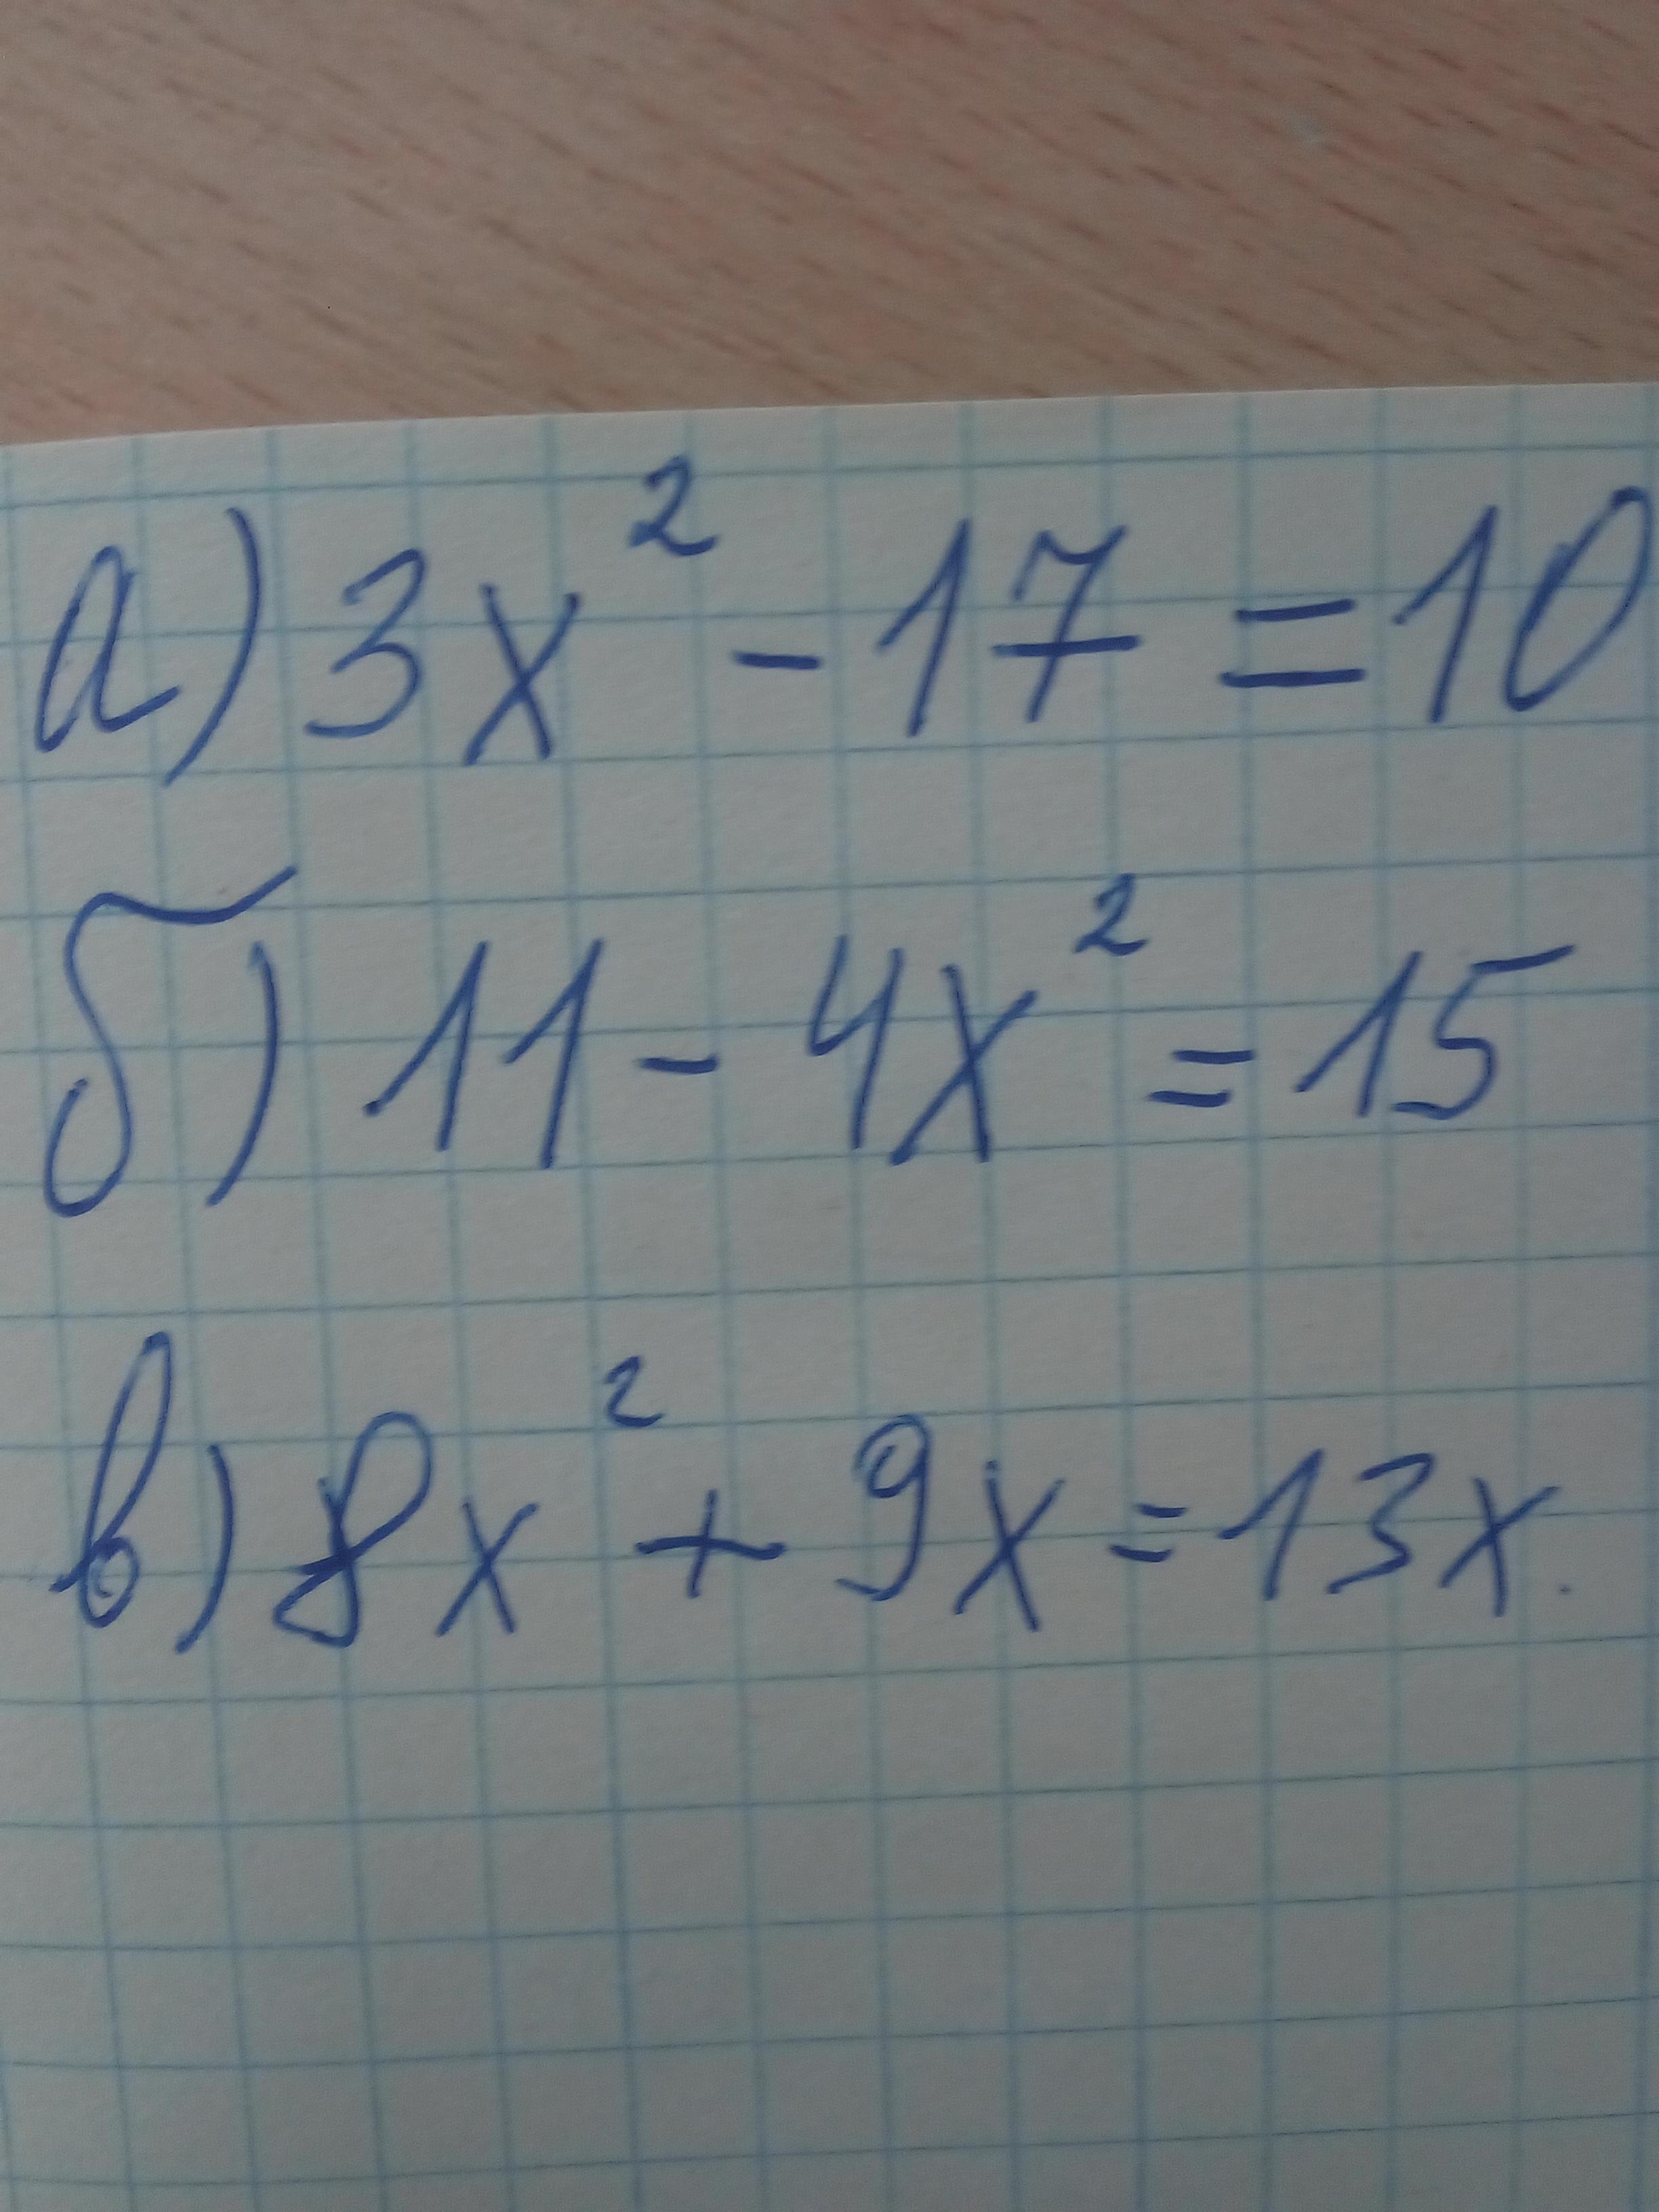 а) 3x² - 17 = 10
б) 11 - 4x² = 15
в) 8x² + 9x = 13x.